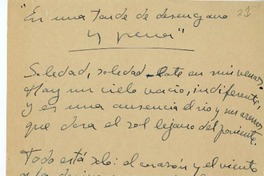 "En una tarde de desengaño
y pena"
Soledad, soledad late en mi verso.
Hay un cielo vacío, indiferente,
y es una ausencia el río y un
que dora el sol lejano del poniente.
Todo está solo: el corazón y el viento